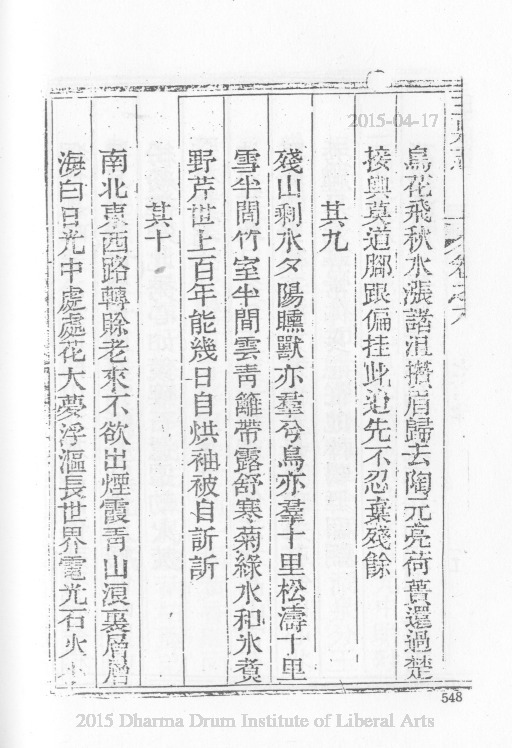 2015-04-17
卷之八
鳥花飛秋水漲諸沮攢眉歸去陶元亮荷蕢還過楚
接輿莫道腳跟偏挂此迫先不忍棄殘餘
其九
殘山剩水夕陽曛獸亦羣兮鳥亦羣十里松濤十里
雪半間竹室半間雲青籬帶露舒寒菊綠水和冰煑
野芹世上百年能幾日自烘袖被自訢訢
其十
南北東西路轉賒老來不欲出煙霞青山湏裏層層
海白日光中處處花大夢浮漚長世界電光石火
548
2015 Dharma Drum Institute of Liberal Arts